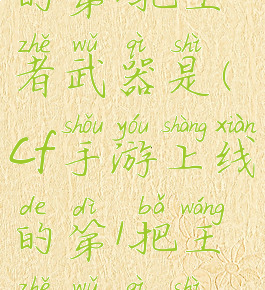 的第1把王
zhě wǔ qì shì
者武器是(
shǒu yóu shàng xiàn
cf手游上线
de dì bǎ wáng
的第1把王
zhě wǔ qì shì